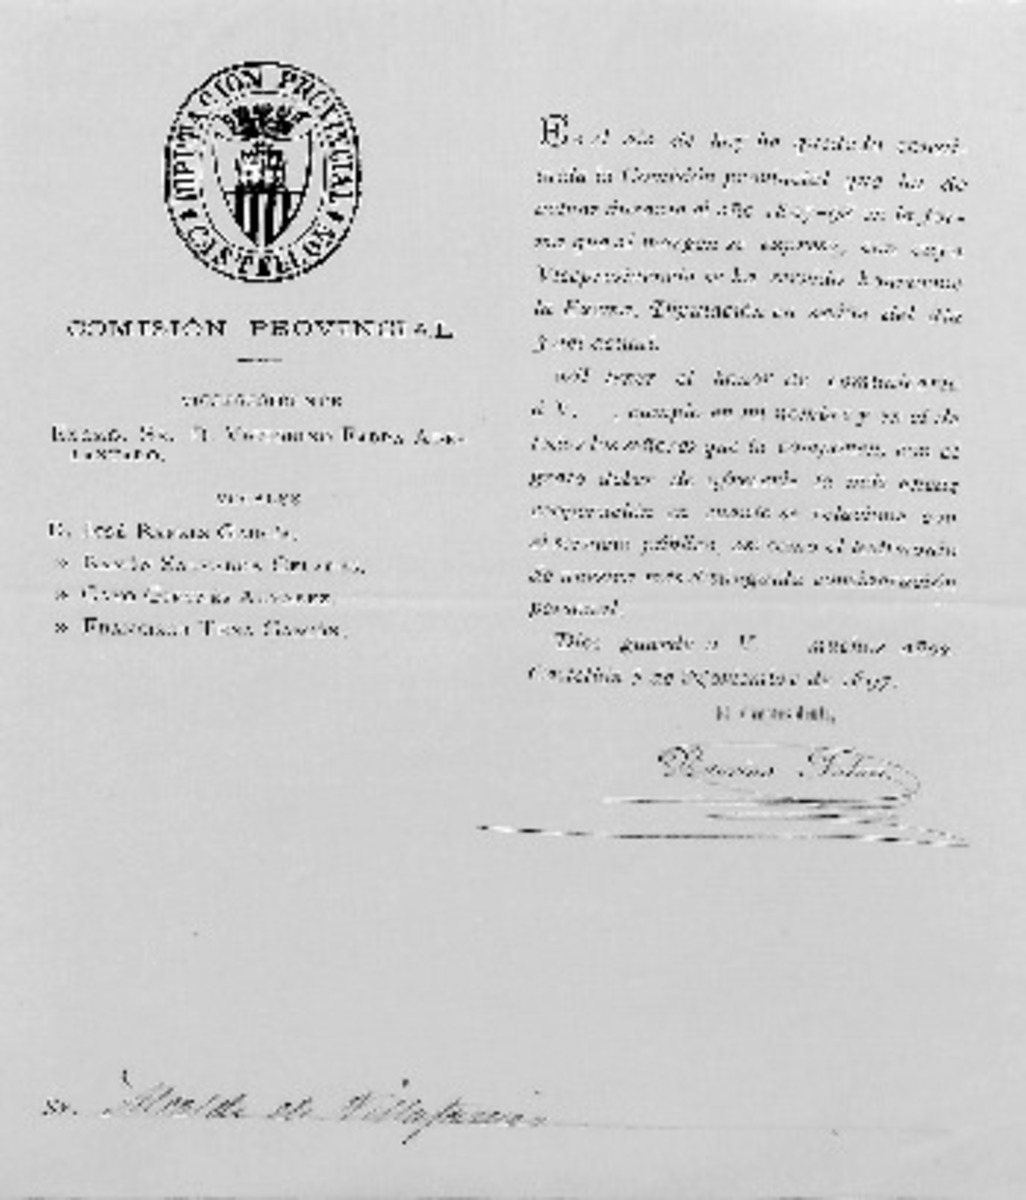 DIPUTACION PROVINCIAL
CASTELLON
COMISIÓN PROVINCIAL
VICEPRESIDENTE
EXCMO. SR. D. VICTORINO FABRA ADE-
LANTADO.
VOCALES
D. JOSÉ GARCÍA.
» RAMÓN SALVADOR CELADES.
» CAYO GIRONÉS
» FRANCISCO TENA GARZÓN.
En el día de hoy ha quedado consti-
tuida la Comisión provincial que ha de
actuar durante el año 1897-98 en la for-
ma que al margen se expresa, con cuya
Vicepresidencia se ha servido honrarme
la Excma. Diputación en sesión del día
3 del actual.
Al tener el honor de comunicarlo
á V. , cumplo en mi nombre y en el de
todos los señores que la componen, con el
grato deber de ofrecerle la más eficaz
cooperación en cuanto se relacione con
el servicio público, así como el testimonio
de nuestra más distinguida consideración
personal.
Dios guarde á V. muchos años.
Castellón 5 de Noviembre de 1897.
El Vicepresidente,
Victorino Fabra
Sr. Alcalde de Villafamés